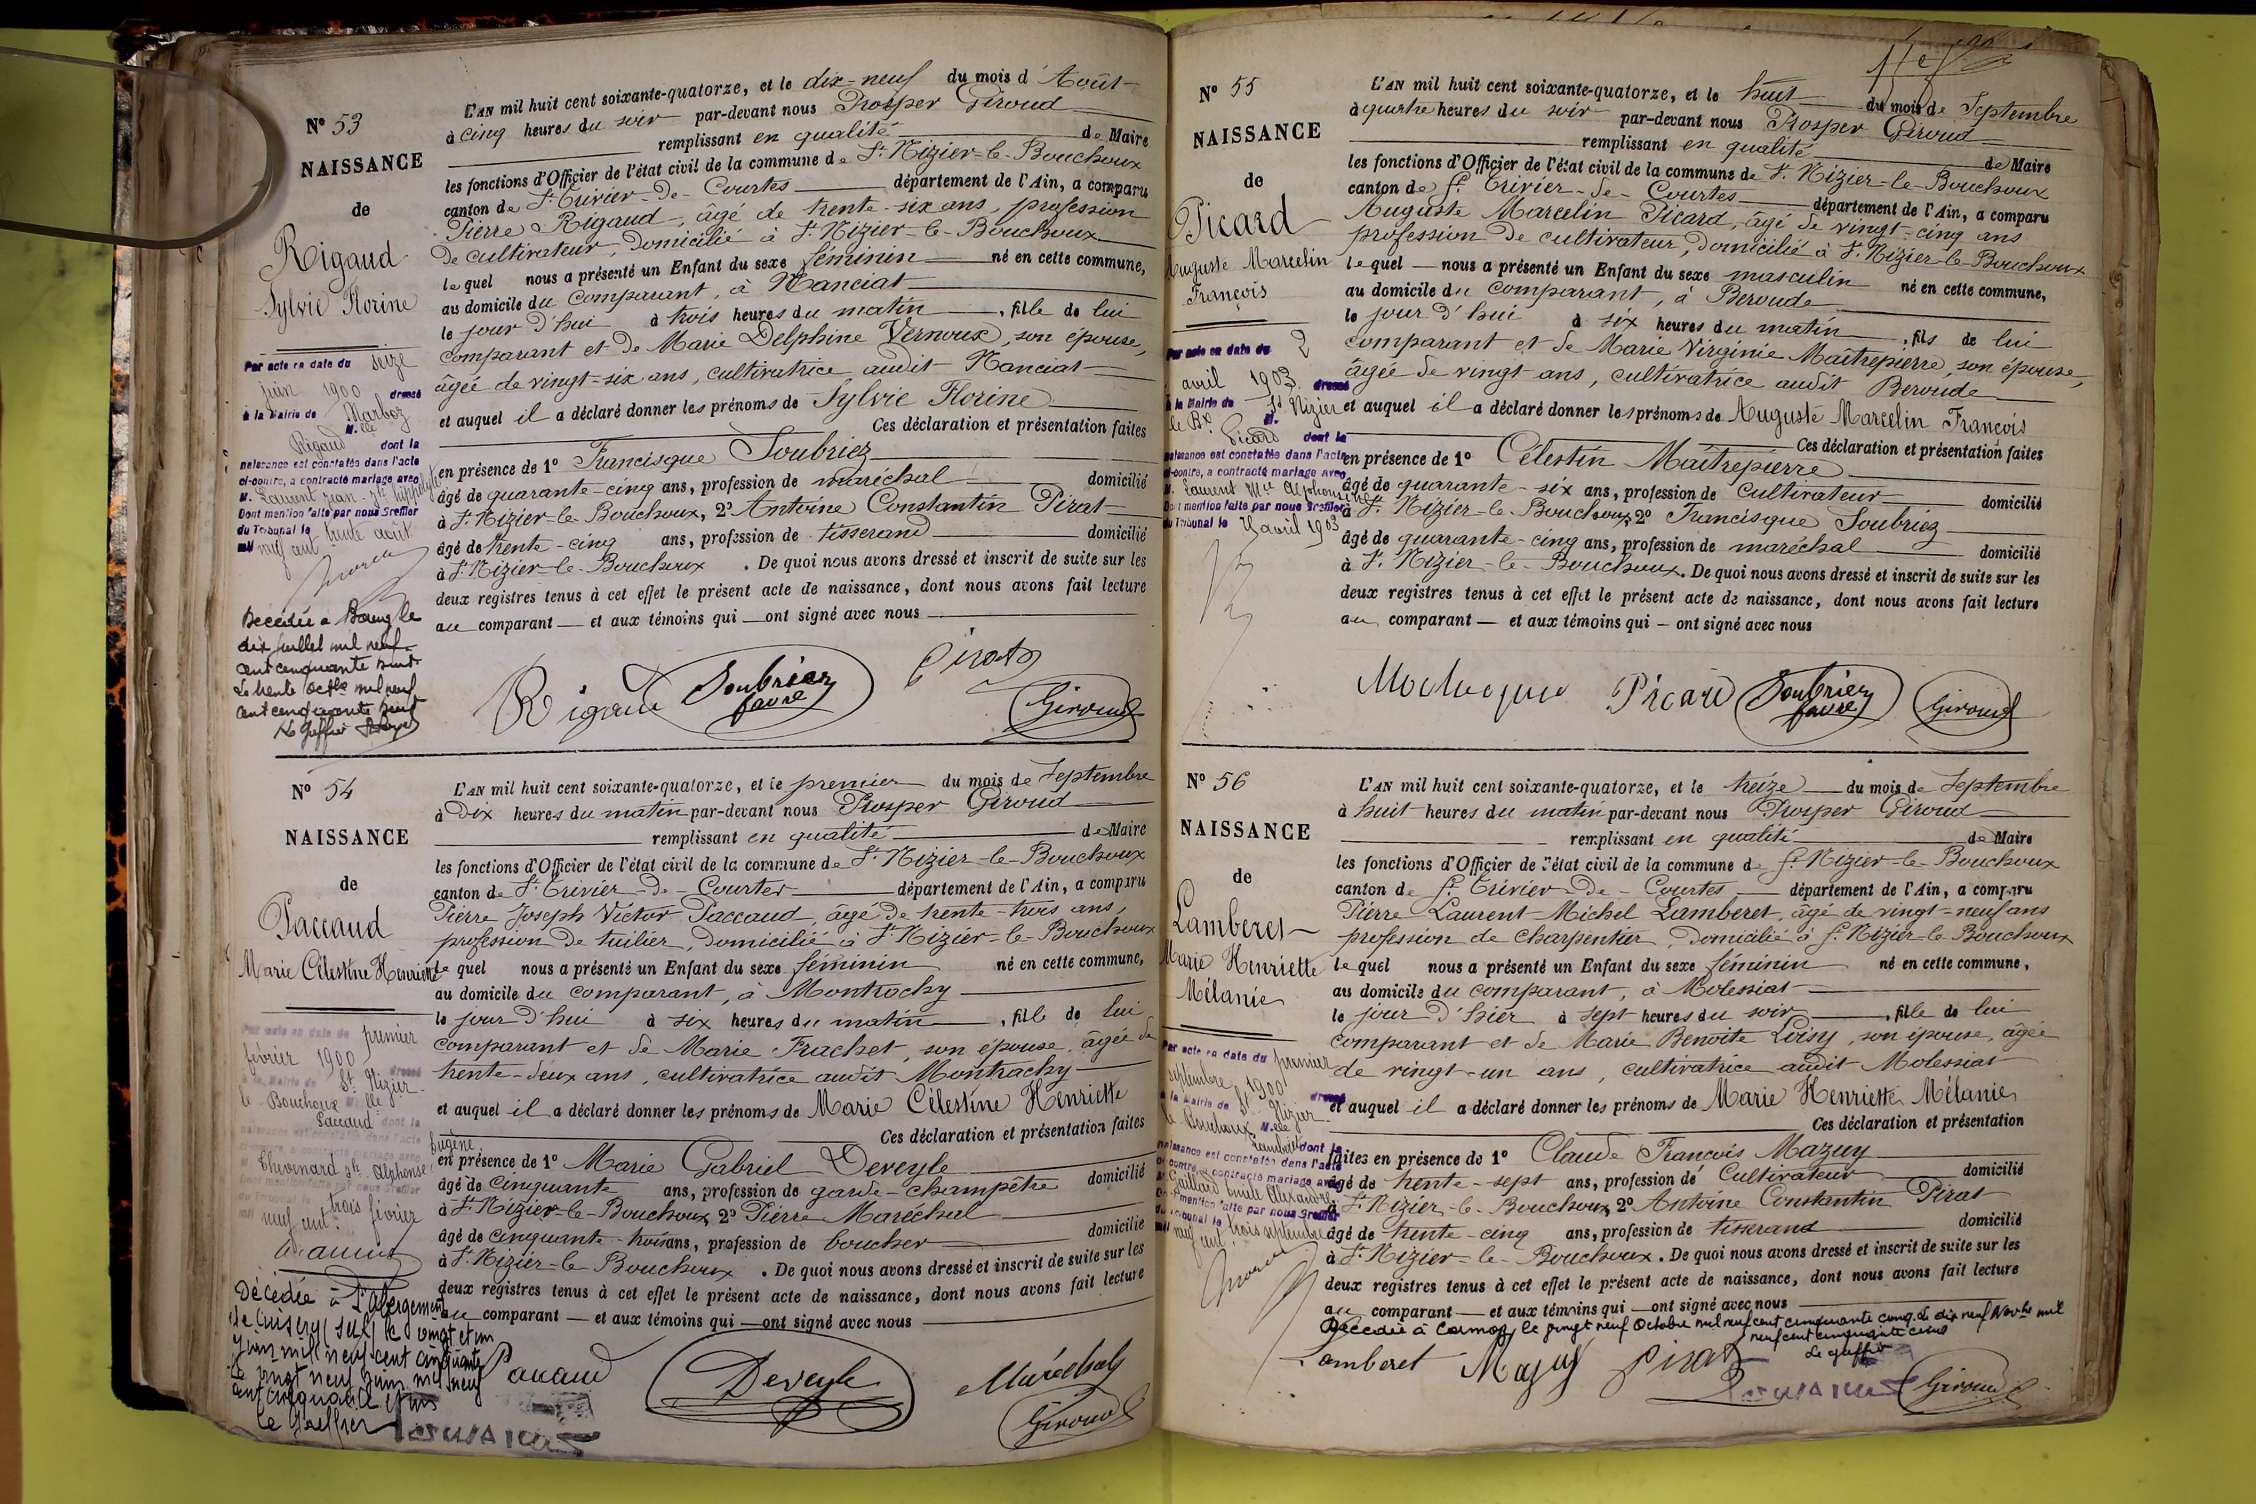 N° 53
NAISSANCE
de
Rigaud
Sylvie Florine
Par acte en date du seize
juin 1900 dressé
à la Mairie de Marboz
M.elle
Rigaud dont la
naissance est constatée dans l'acte
ci-contre, a contracté mariage avec
M. Laurent Jean-Bte hippolyte
Dont mention faite par nous Greffier
du Tribunal le trente août
mil neuf cent
Décédée à Bourg le
dix juillet mil neuf
cent cinquante huit
Le trente octbre mil neuf
cent cinquante huit
Le Greffier
L'AN mil huit cent soixante-quatorze, et le dix-neuf du mois d'Août
à cinq heures du soir par-devant nous Prosper Giroud
remplissant en qualité de Maire
les fonctions d'Officier de l'état civil de la commune de St Nizier-le-Bouchoux
canton de St Trivier-de-Courtes département de l'Ain, a comparu
Pierre Rigaud, âgé de trente-six ans, profession
de cultivateur, domicilié à St Nizier-le-Bouchoux
lequel nous a présenté un Enfant du sexe féminin né en cette commune,
au domicile du comparant, à Nanciat
le jour d'hui à trois heures du matin, fille de lui
comparant et de Marie Delphine Vernoux, son épouse,
âgée de vingt-six ans, cultivatrice audit Nanciat
et auquel il a déclaré donner les prénoms de Sylvie Florine
Ces déclaration et présentation faites
en présence de 1° Francisque Soubriez
âgé de quarante-cinq ans, profession de maréchal domicilié
à St Nizier-le-Bouchoux, 2° Antoine Constantin Pirat
âgé de trente-cinq ans, profession de tisserand domicilié
à St Nizier-le-Bouchoux. De quoi nous avons dressé et inscrit de suite sur les
deux registres tenus à cet effet le présent acte de naissance, dont nous avons fait lecture
au comparant et aux témoins qui ont signé avec nous
Rigaud Soubriez favre Pirat Giroud
N° 54
NAISSANCE
de
Paccaud
Marie Célestine Henriette
Par acte en date du premier
février 1900 dressé
à la Mairie de St Nizier-
le Bouchoux M.elle
Paccaud dont la
naissance est constatée dans l'acte
ci-contre, a contracté mariage avec
M. Thevenard Jh Alphonse Eugène
Dont mention faite par nous Greffier
du Tribunal le trois février
mil neuf cent
Décédée à L'abergement
de Cuisery (S&L) le vingt et un
juin mil neuf cent cinquante
Le vingt neuf juin mil neuf
cent cinquante et un
Le Greffier
L'AN mil huit cent soixante-quatorze, et le premier du mois de Septembre
à dix heures du matin par-devant nous Prosper Giroud
remplissant en qualité de Maire
les fonctions d'Officier de l'état civil de la commune de St Nizier-le-Bouchoux
canton de St Trivier-de-Courtes département de l'Ain, a comparu
Pierre Joseph Victor Paccaud, âgé de trente-trois ans,
profession de tuilier, domicilié à St Nizier-le-Bouchoux
lequel nous a présenté un Enfant du sexe féminin né en cette commune,
au domicile du comparant, à Montrachy
le jour d'hui à six heures du matin, fille de lui
comparant et de Marie Frachet, son épouse, âgée de
trente-deux ans, cultivatrice audit Montrachy
et auquel il a déclaré donner les prénoms de Marie Célestine Henriette
Ces déclaration et présentation faites
en présence de 1° Marie Gabriel Deveyle
âgé de cinquante ans, profession de garde-champêtre domicilié
à St Nizier-le-Bouchoux 2° Pierre Maréchal
âgé de cinquante-trois ans, profession de boucher domicilié
à St Nizier-le-Bouchoux. De quoi nous avons dressé et inscrit de suite sur les
deux registres tenus à cet effet le présent acte de naissance, dont nous avons fait lecture
au comparant et aux témoins qui ont signé avec nous
Paccaud Deveyle Maréchal
Giroud
N° 55
NAISSANCE
de
Picard
Auguste Marcelin
François
Par acte en date du 2
avril 1903 dressé
à la Mairie de St Nizier
le Bx M.
Picard dont la
naissance est constatée dans l'acte
ci-contre, a contracté mariage avec
M. Laurent Mie Alphonsine
Dont mention faite par nous Greffier
du Tribunal le avril 1903
L'AN mil huit cent soixante-quatorze, et le huit du mois de Septembre
à quatre heures du soir par-devant nous Prosper Giroud
remplissant en qualité de Maire
les fonctions d'Officier de l'état civil de la commune de St Nizier-le-Bouchoux
canton de St Trivier-de-Courtes département de l'Ain, a comparu
Auguste Marcelin Picard, âgé de vingt-cinq ans
profession de cultivateur, domicilié à St Nizier-le-Bouchoux
lequel nous a présenté un Enfant du sexe masculin né en cette commune,
au domicile du comparant, à Beroude
le jour d'hui à six heures du matin, fils de lui
comparant et de Marie Virginie Maitrepierre, son épouse,
âgée de vingt ans, cultivatrice audit Beroude
et auquel il a déclaré donner les prénoms de Auguste Marcelin François
Ces déclaration et présentation faites
en présence de 1° Célestin Maitrepierre
âgé de quarante-six ans, profession de cultivateur domicilié
à St Nizier-le-Bouchoux 2° Francisque Soubriez
âgé de quarante-cinq ans, profession de maréchal domicilié
à St Nizier-le-Bouchoux. De quoi nous avons dressé et inscrit de suite sur les
deux registres tenus à cet effet le présent acte de naissance, dont nous avons fait lecture
au comparant et aux témoins qui ont signé avec nous
Picard Soubriez favre Giroud
N° 56
NAISSANCE
de
Lamberet
Marie Henriette
Mélanie
Par acte en date du premier
septembre 1900 dressé
à la Mairie de St Nizier-
le Bouchoux M.elle
Lamberet dont la
naissance est constatée dans l'acte
ci-contre, a contracté mariage avec
M. Gaillard Emile Alexandre
Dont mention faite par nous Greffier
du Tribunal le trois septembre
mil neuf cent
L'AN mil huit cent soixante-quatorze, et le treize du mois de Septembre
à huit heures du matin par-devant nous Prosper Giroud
remplissant en qualité de Maire
les fonctions d'Officier de l'état civil de la commune de St Nizier-le-Bouchoux
canton de St Trivier-de-Courtes département de l'Ain, a comparu
Pierre Laurent Michel Lamberet, âgé de vingt-neuf ans
profession de charpentier, domicilié à St Nizier-le-Bouchoux
lequel nous a présenté un Enfant du sexe féminin né en cette commune,
au domicile du comparant, à Molessiat
le jour d'hier à sept heures du soir, fille de lui
comparant et de Marie Benoite Loisy, son épouse, âgée
de vingt-un ans, cultivatrice audit Molessiat
et auquel il a déclaré donner les prénoms de Marie Henriette Mélanie
Ces déclaration et présentation
faites en présence de 1° Claude François Mazuy
âgé de trente-sept ans, profession de cultivateur domicilié
à St Nizier-le-Bouchoux 2° Antoine Constantin Pirat
âgé de trente-cinq ans, profession de tisserand domicilié
à St Nizier-le-Bouchoux. De quoi nous avons dressé et inscrit de suite sur les
deux registres tenus à cet effet le présent acte de naissance, dont nous avons fait lecture
au comparant et aux témoins qui ont signé avec nous
Décédée à Cormoz le vingt neuf Octobre mil neuf cent cinquante cinq. Le dix neuf Novbre mil
neuf cent cinquante cinq
Le greffier
Lamberet Mazuy Pirat
Giroud